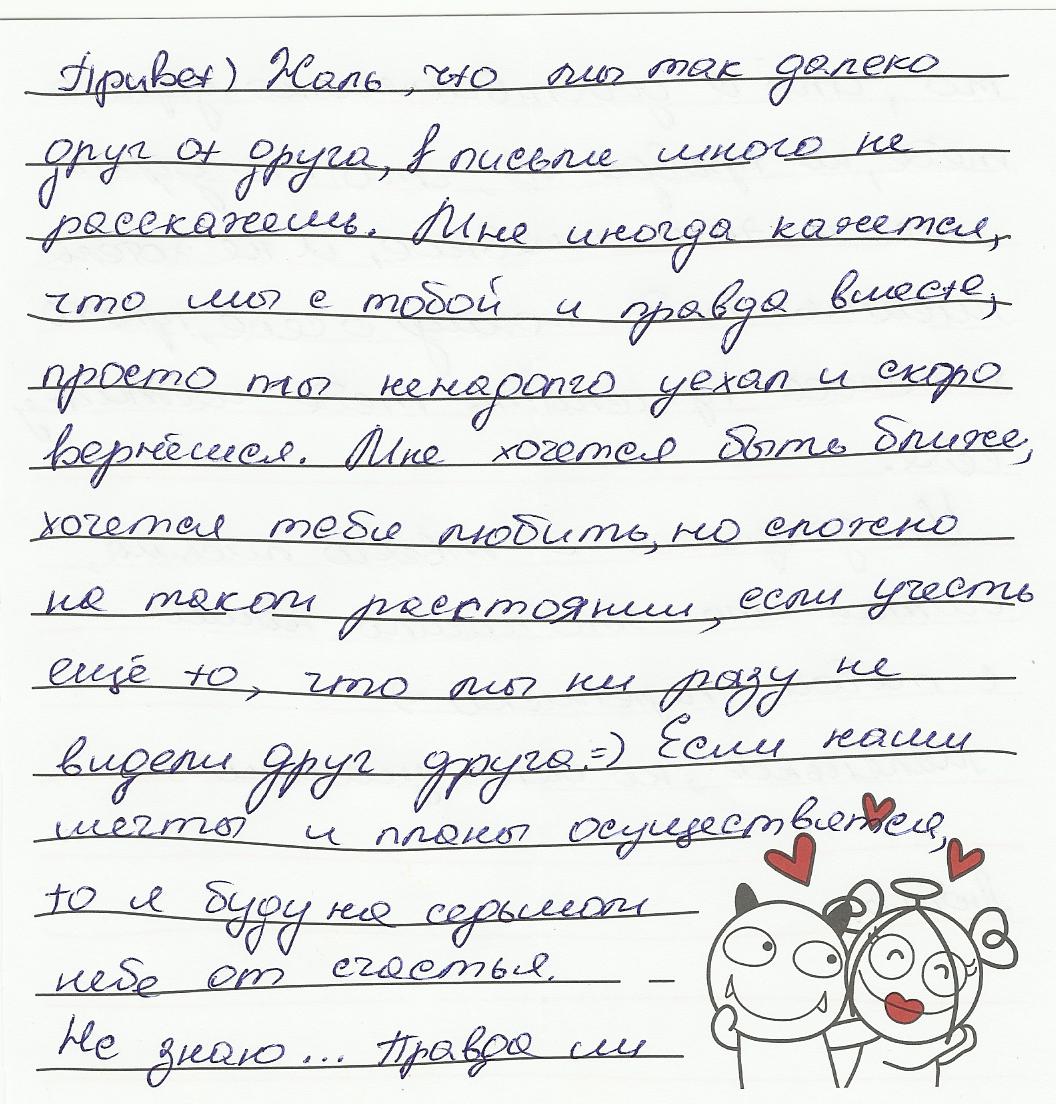 Привет) Жаль, что мы так далеко
друг от друга, в письме много не
расскажешь. Мне иногда кажется,
что мы с тобой и правда вместе,
просто ты ненадолго уехал и скоро
вернёшься. Мне хочется быть ближе,
хочется тебя любить, но сложно
на таком расстоянии, если учесть
ещё то, что мы ни разу не
видели друг друга.=) Если наши
мечты и планы осуществятся,
то я буду на седьмом
небе от счастья.
Не знаю... Правда ли